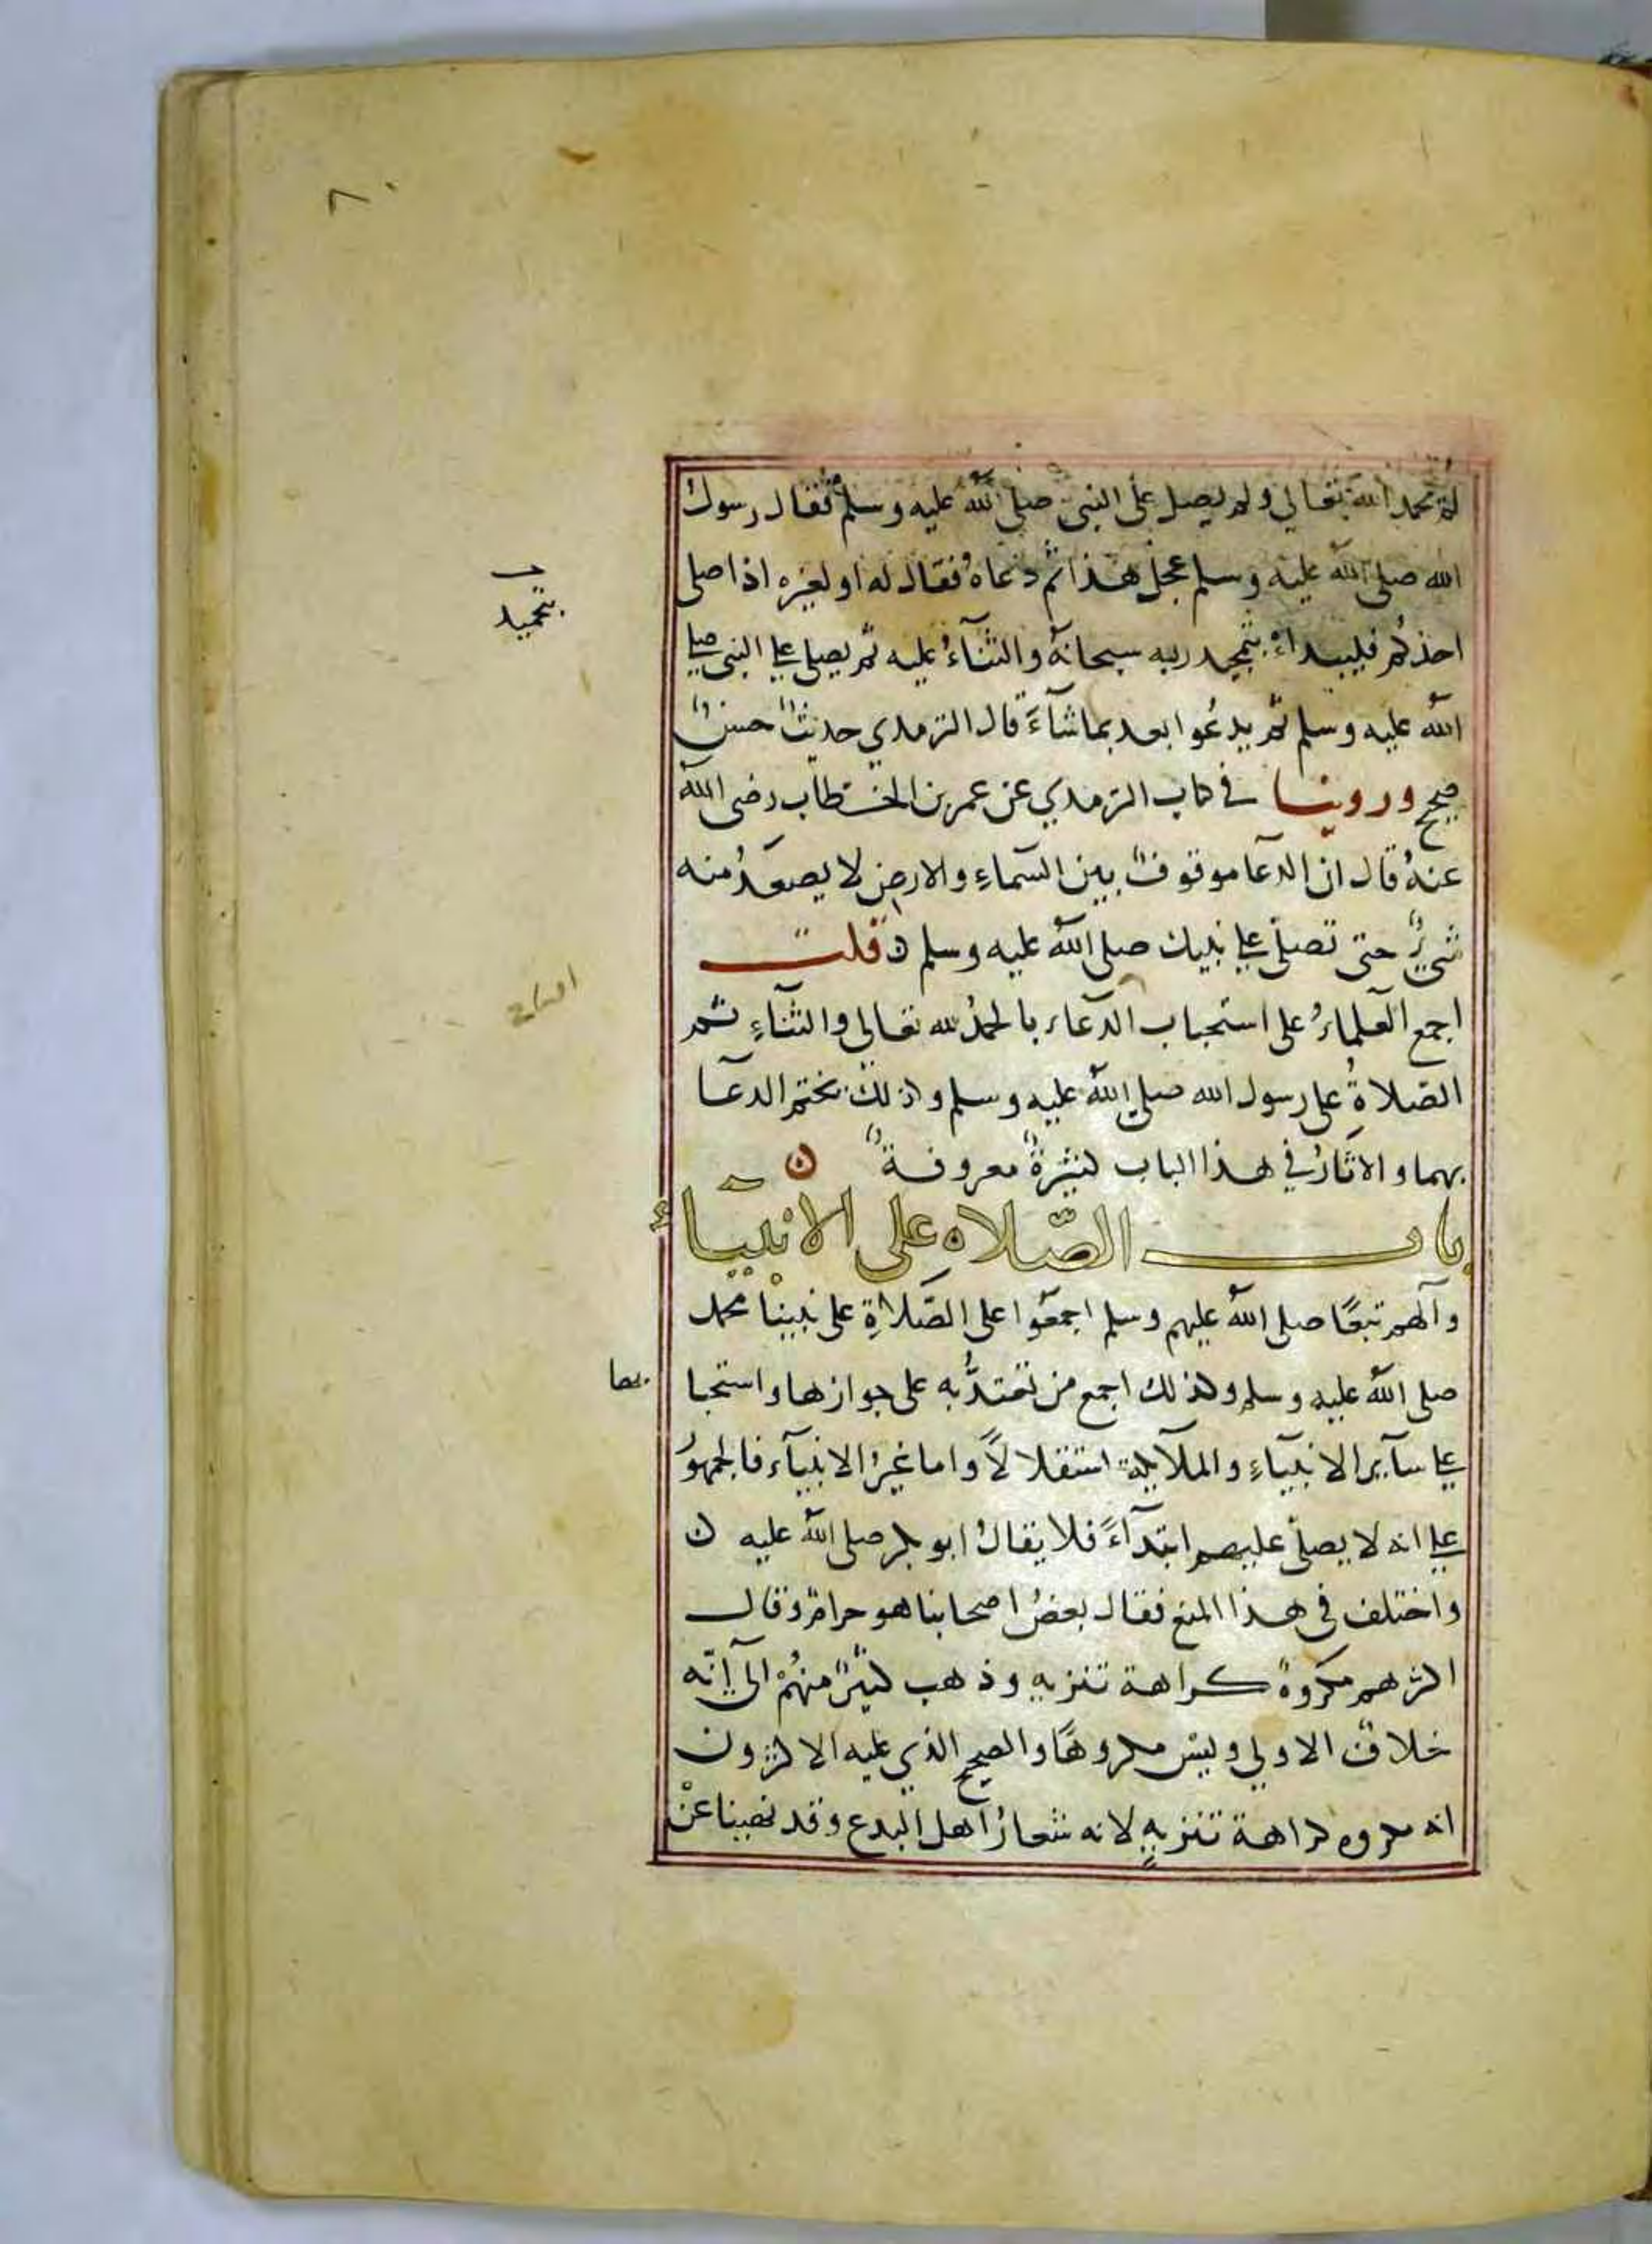 ٨٠
لم يحمد الله تعالى ولم يصل على النبي صلى الله عليه وسلم فقال رسول
الله صلى الله عليه وسلم عجل هذا ثم دعاه فقال له او لغيره اذا صلى
بتحميد
احدكم فليبداء بتمجيد ربه سبحانه والثنآء عليه ثم يصلي على النبي صلى
الله عليه وسلم ثم يدعوا بعد بما شآء قال الترمذي حديث حسن
صحيح وروينا في كتاب الترمذي عن عمر بن الخطاب رضي الله
عنه قال ان الدعا موقوف بين السماء والارض لا يصعد منه
شيء حتى تصلي على نبيك صلى الله عليه وسلم ن قلت
اجمع العلماء على استحباب الدعاء بالحمد لله تعالى والثناء ثم
الصلاة على رسول الله صلى الله عليه وسلم وكذلك تختم الدعا
بهما والاثار في هذا الباب كثيرة معروفة ن
باب الصلاه على الانبيآء
وآلهم تبعا صلى الله عليهم وسلم اجمعوا على الصلاة على نبينا محمد
صلى الله عليه وسلم وكذلك اجمع من تعتد به على جوازها واستحبا
بها
على سآير الانبيآء والملآيكة استقلالا واما غير الانبيآء فالجمهور
على انه لا يصلى عليهم ابتدآء فلا يقال ابو بكر صلى الله عليه ن
واختلف في هذا المنع فقال بعض اصحابنا هو حرام وقال
اكثرهم مكروه كراهة تنزيه وذهب كثير منهم الى انه
خلاف الاولى وليس مكروها والصحيح الذي عليه الاكثرون
انه مكروه كراهة تنزيه لانه شعار اهل البدع وقد نهينا عن